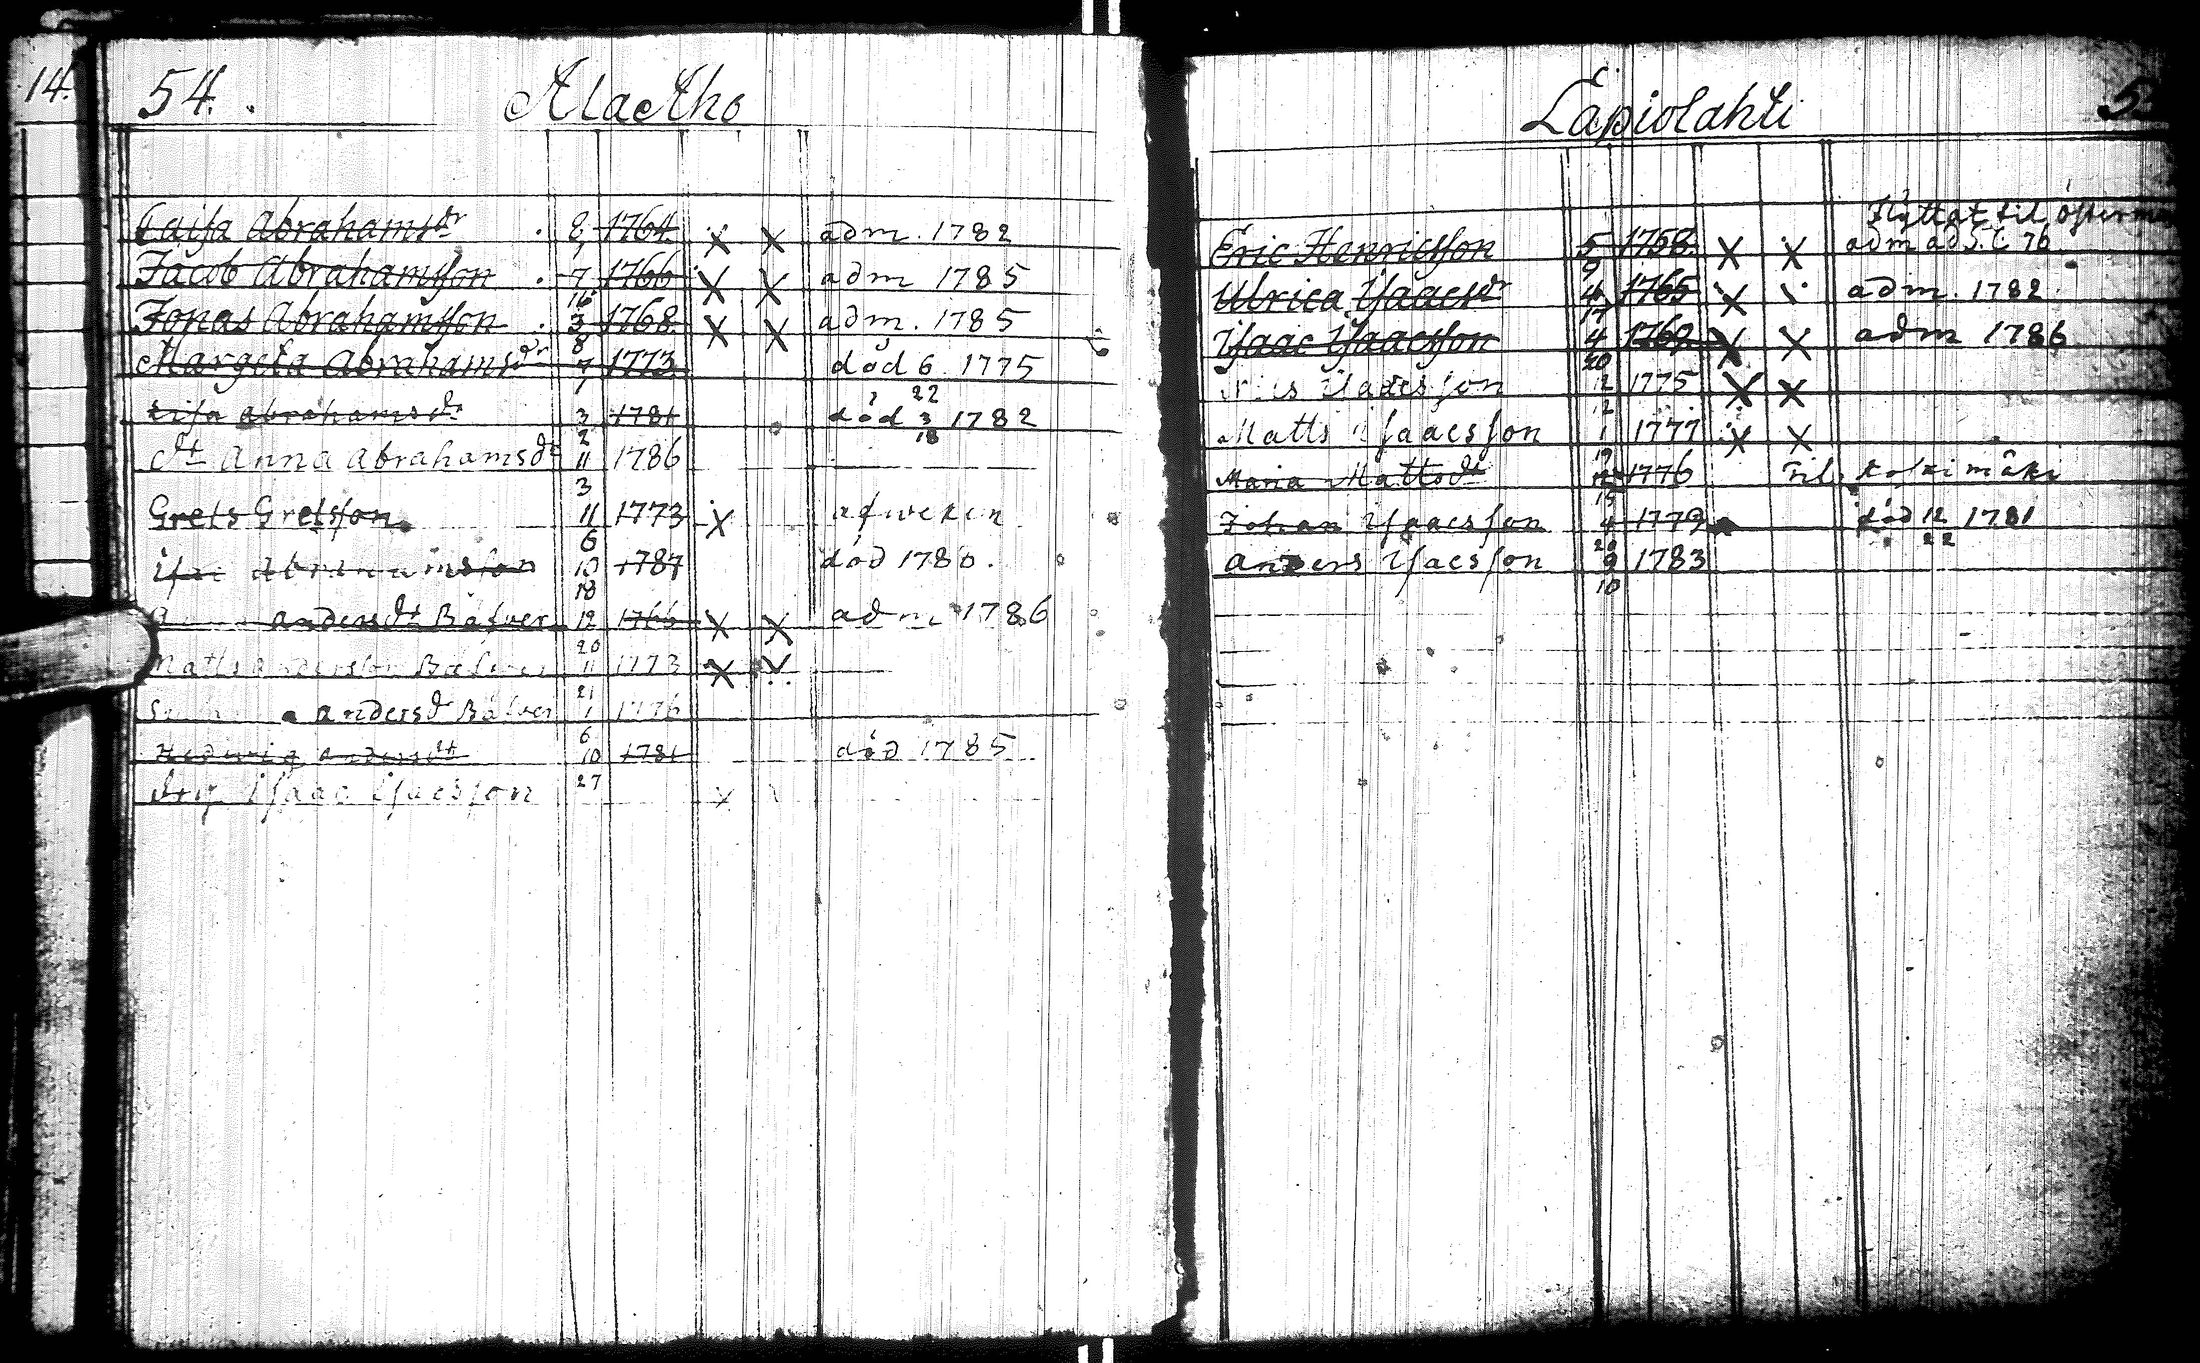 14.
54. AlaAho
Caisa Abrahamsdr 8 1764 X X adm. 1782
1
Jacob Abrahamsson 7 1766 X X adm 1785
16
Jonas Abrahamsson 3 1768 X X adm. 1785
8
Margeta Abrahamsdr 7 1773 död 6 1775
1 22
Lisa Abrahamsdr 3 1781 död 3 1782
2 18
dr Anna Abrahamsdr 11 1786
3
Grels Grelsson 11 1773 X afweken
6
Abrahamsson 10 1787 död 178
18
Andersdr Bäfver 12 1766 X X adm 1786
20
Matts Andersson Bäfver 11 1773 X X
21
Andersdr Bäfver 1 1776
6
Hedwig Andersdr 10 1781 död 1785
27
Isaac Isacsson X
Lapiolahti
Flyttat til
Eric Henricsson 5 1758 X X adm
9
Ulrica Isaacsdr 4 1765 X adm. 1782
17
Isaac Isaacsson 4 1769 X X adm 1786
20
Isaacsson 12 1775 X X
12
Matts Isaacsson 1 1777 X X
19
Maria Mattsdr 1776 Til Koskimäki
15
Johan Isaacsson 4 1779 död 12 1781
20 22
Anders Isacsson 9 1783
10